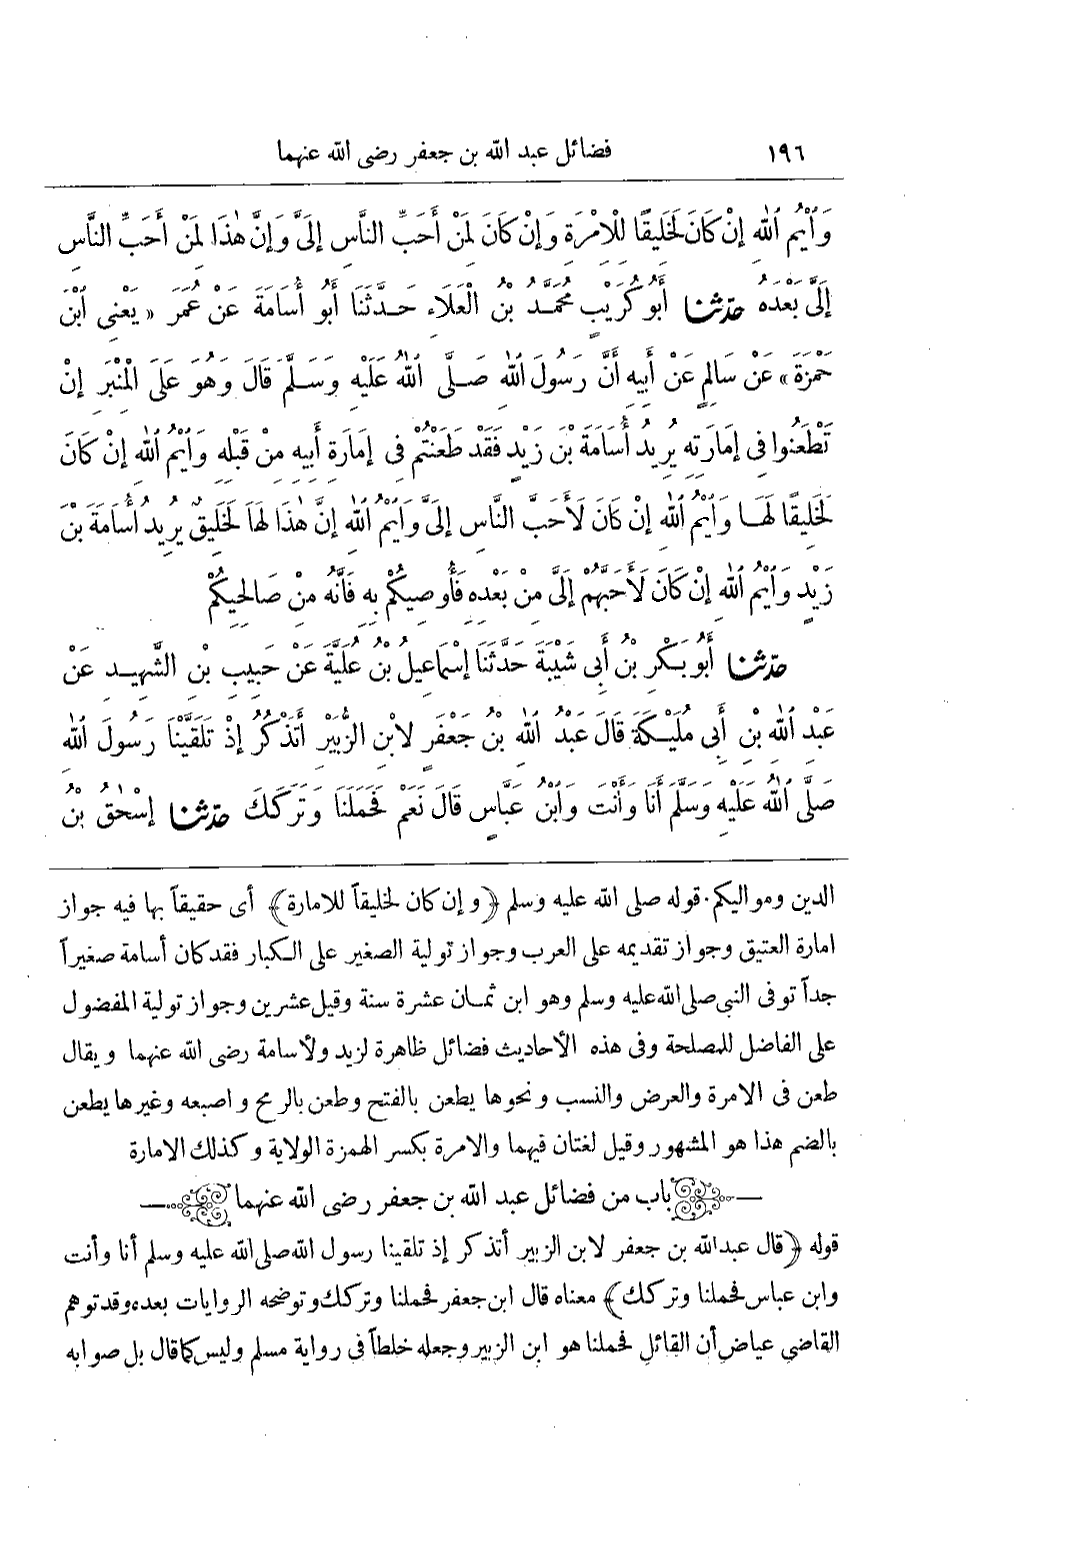 ١٩٦ فضائل عبد الله بن جعفر رضى الله عنهما
وَٱيْمُ ٱللهِ إِنْ كَانَ لَخَلِيقًا لِلْإِمْرَةِ وَإِنْ كَانَ لَمِنْ أَحَبِّ النَّاسِ إِلَيَّ وَإِنَّ هٰذَا لَمِنْ أَحَبِّ النَّاسِ
إِلَيَّ بَعْدَهُ حدثنا أَبُو كُرَيْبٍ مُحَمَّدُ بْنُ الْعَلَاءِ حَدَّثَنَا أَبُو أُسَامَةَ عَنْ عُمَرَ « يَعْنِي ٱبْنَ
حَمْزَةَ » عَنْ سَالِمٍ عَنْ أَبِيهِ أَنَّ رَسُولَ ٱللهِ صَلَّى ٱللهُ عَلَيْهِ وَسَلَّمَ قَالَ وَهُوَ عَلَى الْمِنْبَرِ إِنْ
تَطْعَنُوا فِي إِمَارَتِهِ يُرِيدُ أُسَامَةَ بْنَ زَيْدٍ فَقَدْ طَعَنْتُمْ فِي إِمَارَةِ أَبِيهِ مِنْ قَبْلِهِ وَٱيْمُ ٱللهِ إِنْ كَانَ
لَخَلِيقًا لَهَا وَٱيْمُ ٱللهِ إِنْ كَانَ لَأَحَبَّ النَّاسِ إِلَيَّ وَٱيْمُ ٱللهِ إِنَّ هٰذَا لَهَا لَخَلِيقٌ يُرِيدُ أُسَامَةَ بْنَ
زَيْدٍ وَٱيْمُ ٱللهِ إِنْ كَانَ لَأَحَبَّهُمْ إِلَيَّ مِنْ بَعْدِهِ فَأُوصِيكُمْ بِهِ فَانَّهُ مِنْ صَالِحِيكُمْ
حدثنا أَبُو بَكْرِ بْنُ أَبِي شَيْبَةَ حَدَّثَنَا إِسْمَاعِيلُ بْنُ عُلَيَّةَ عَنْ حَبِيبِ بْنِ الشَّهِيدِ عَنْ
عَبْدِ ٱللهِ بْنِ أَبِي مُلَيْكَةَ قَالَ عَبْدُ ٱللهِ بْنُ جَعْفَرٍ لِابْنِ الزُّبَيْرِ أَتَذْكُرُ إِذْ تَلَقَّيْنَا رَسُولَ ٱللهِ
صَلَّى ٱللهُ عَلَيْهِ وَسَلَّمَ أَنَا وَأَنْتَ وَٱبْنُ عَبَّاسٍ قَالَ نَعَمْ فَحَمَلَنَا وَتَرَكَكَ حدثنا إِسْحٰقُ بْنُ
الدين ومواليكم . قوله صلى الله عليه وسلم ﴿ وإن كان لخليقاً للامارة ﴾ أى حقيقاً بها فيه جواز
امارة العتيق وجواز تقديمه على العرب وجواز تولية الصغير على الكبار فقد كان أسامة صغيراً
جداً توفى النبى صلى الله عليه وسلم وهو ابن ثمان عشرة سنة وقيل عشرين وجواز تولية المفضول
على الفاضل للمصلحة وفى هذه الأحاديث فضائل ظاهرة لزيد ولأسامة رضى الله عنهما ويقال
طعن فى الامرة والعرض والنسب ونحوها يطعن بالفتح وطعن بالرمح واصبعه وغيرها يطعن
بالضم هذا هو المشهور وقيل لغتان فيهما والامرة بكسر الهمزة الولاية وكذلك الامارة
باب من فضائل عبد الله بن جعفر رضى الله عنهما
قوله ﴿ قال عبد الله بن جعفر لابن الزبير أتذكر إذ تلقينا رسول الله صلى الله عليه وسلم أنا وأنت
وابن عباس فحملنا وتركك ﴾ معناه قال ابن جعفر فحملنا وتركك وتوضحه الروايات بعده وقد توهم
القاضى عياض أن القائل فحملنا هو ابن الزبير وجعله خلطاً فى رواية مسلم وليس كما قال بل صوابه